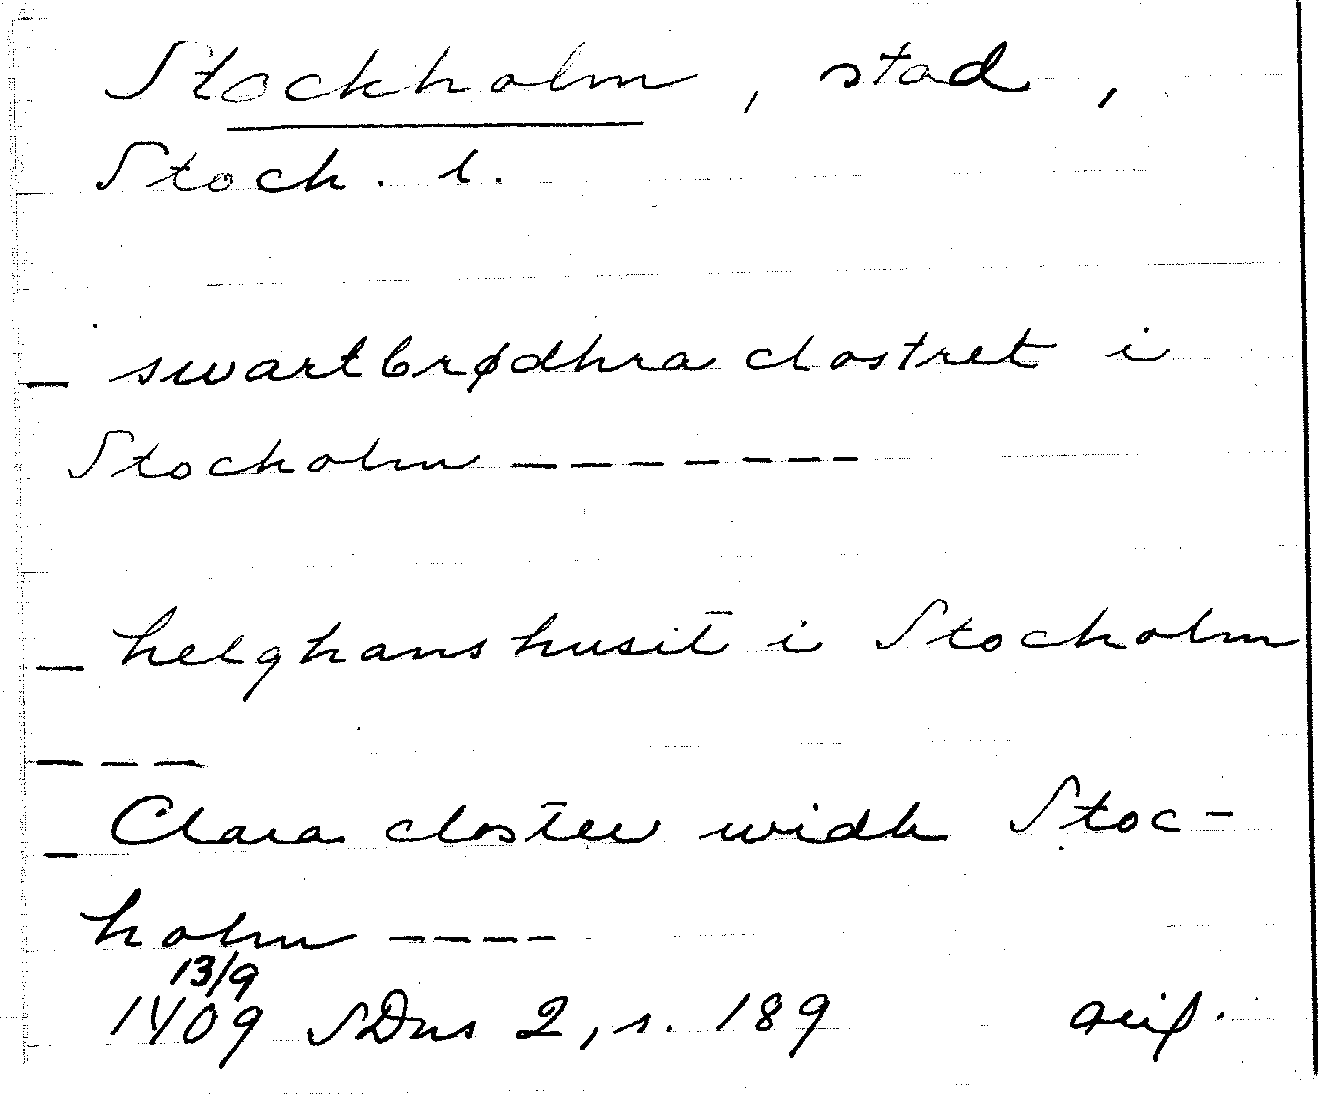 Stockholm, stad,
Stoch. l.
_ swartbrødhra clostret i
Stocholm - - - - - - -
_ helghanshusit̄ i Stocholm
- - -
_ Clara clost̄er widh Stoc-
holm - - - -
13/9
1409 SDns 2, s. 189